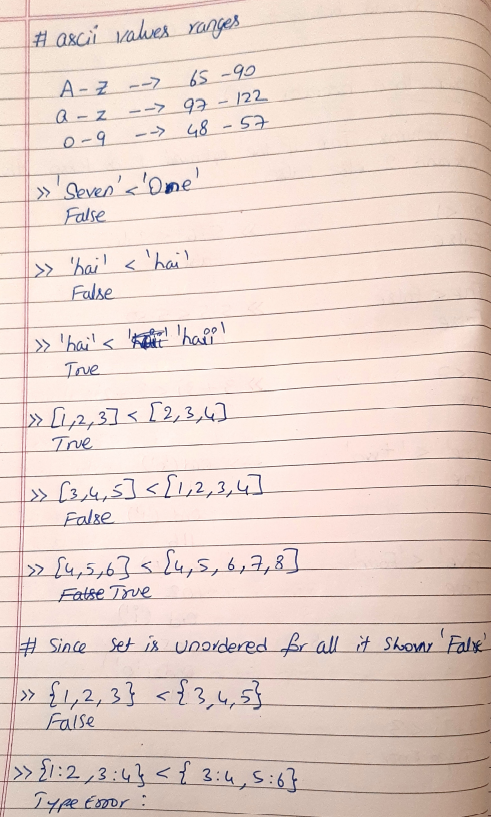 # ascii values ranges
A - Z --> 65 - 90
a - z --> 97 - 122
0 - 9 --> 48 - 57
>> 'Seven' < 'One'
False
>> 'hai' < 'hai'
False
>> 'hai' < 'haii'
True
>> [1,2,3] < [2,3,4]
True
>> [3,4,5] < [1,2,3,4]
False
>> [4,5,6] < [4,5,6,7,8]
False True
# Since set is unordered for all it shows 'False'
>> {1,2,3} < {3,4,5}
False
>> {1:2, 3:4} < { 3:4, 5:6}
Type Error :